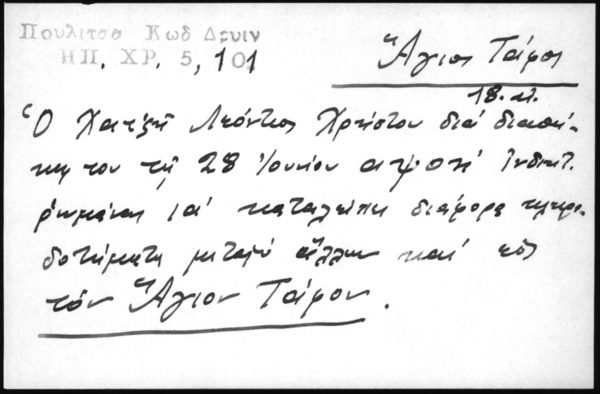 Πουλιτσα Κωδ Δρυιν
ΗΠ. ΧΡ. 5, 101
Ἅγιος Τάφος
18. αι.
Ὁ Χατζῆ Λεόντιος Χρήστου διά διαθή-
κης του τῇ 28 Ἰουνίου αψοη΄ Ἰνδικτ.
ια΄ καταλείπει διάφορα κληρο-
δοτήματα μεταξύ ἄλλων καί εἰς
τόν Ἅγιον Τάφον.